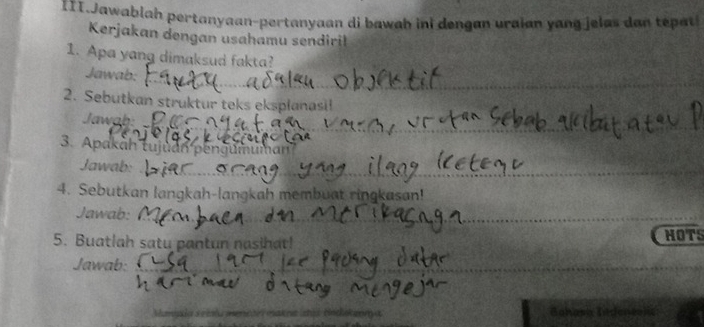 III. Jawablah pertanyaan-pertanyaan di bawah ini dengan uraian yang jelas dan tepat!
Kerjakan dengan usahamu sendiri!
1. Apa yang dimaksud fakta?
Jawab: Fakta adalah objektif
2. Sebutkan struktur teks eksplanasi!
Jawab: Pernyataan umum, urutan sebab akibat atau P
Penjelas, kesimpulan
3. Apakah tujuan pengumuman?
Jawab: biar orang yang ilang ketemu
4. Sebutkan langkah-langkah membuat ringkasan!
Jawab: Membaca dan
5. Buatlah satu pantun nasihat!
HOTS
Jawab: rusa lari ke padang datar
harimau datang mengejar
Bahasa Indonesia